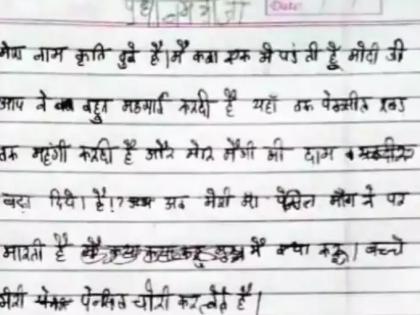 प्रधानमंत्री जी
Date:
मेरा नाम कृति दुबे है। मै कक्षा एक मे पढती हूँ मोदी जी
आप ने बहुत महगाई करदी है यहाँ तक पेन्सील रबड़
तक महंगी करदी है और मेरे मैगी की दाम
बढ़ा दिये। है!? अब मेरी मा पेंसिल माँगने पर
मारती है मै क्या करू। बच्चे
मेरी पेन्सिल चोरी कर लेते है।